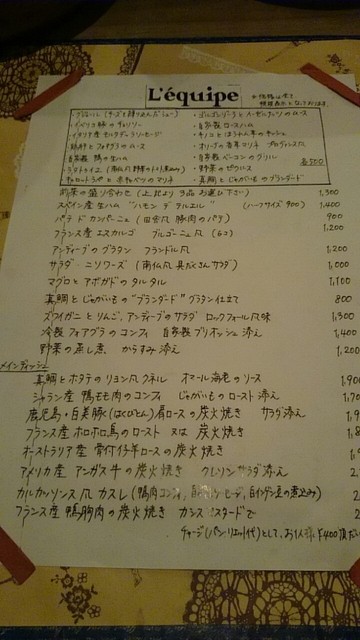 L'équipe
※価格は全て
税込表示となっております。
・イベリコ豚のチョリソー
・自家製ロースハム
・イタリア産モルタデッラソーセージ
・キノコとほうれん草のキッシュ
・鶏肝とフォアグラのムース
・オリーブの香草マリネ プロヴァンス風
・自家製 鴨の生ハム
・自家製ベーコンのグリル
・ラタトゥイユ(南仏風野菜のトマト煮込み)
・野菜のピクルス
各500
・キャロットラペと赤キャベツのマリネ
・真鯛とじゃがいものブランダード
前菜の盛り合わせ(上記より3品お選び下さい) 1,300
スペイン産生ハム "ハモン デ テルエル" (ハーフサイズ 900) 1,400
パテ ド カンパーニュ(田舎風 豚肉のパテ) 900
フランス産エスカルゴ ブルゴーニュ風(6コ) 1,200
アンディーブのグラタン フランドル風 1,200
サラダ ニソワーズ(南仏風 具だくさんサラダ) 1,000
マグロとアボガドのタルタル 1,100
真鯛とじゃがいもの"ブランダード"グラタン仕立て 800
ズワイガニとりんご、アンディーブのサラダ ロックフォール風味 1,300
冷製フォアグラのコンフィ 自家製ブリオッシュ添え 1,400
野菜の蒸し煮 からすみ添え 1,200
メインディッシュ
真鯛とホタテのリヨン風クネル オマール海老のソース 1,90
シャラン産 鴨もも肉のコンフィ じゃがいものロースト添え 1,70
鹿児島・白美豚(はくびとん)肩ロースの炭火焼き サラダ添え 1,9
フランス産ホロホロ鳥のロースト 又は 炭火焼き 1,8
オーストラリア産 骨付仔羊ロースの炭火焼き
アメリカ産 アンガス牛の炭火焼き クレソンサラダ添え 2
カルカッソンヌ風カスレ(鴨肉コンフィ、自家製ソーセージ、白インゲン豆の煮込み)
フランス産 鴨胸肉の炭火焼き カシスマスタードで 2
チャージ(パン・リエット代)として、お1人様 ¥400頂だ